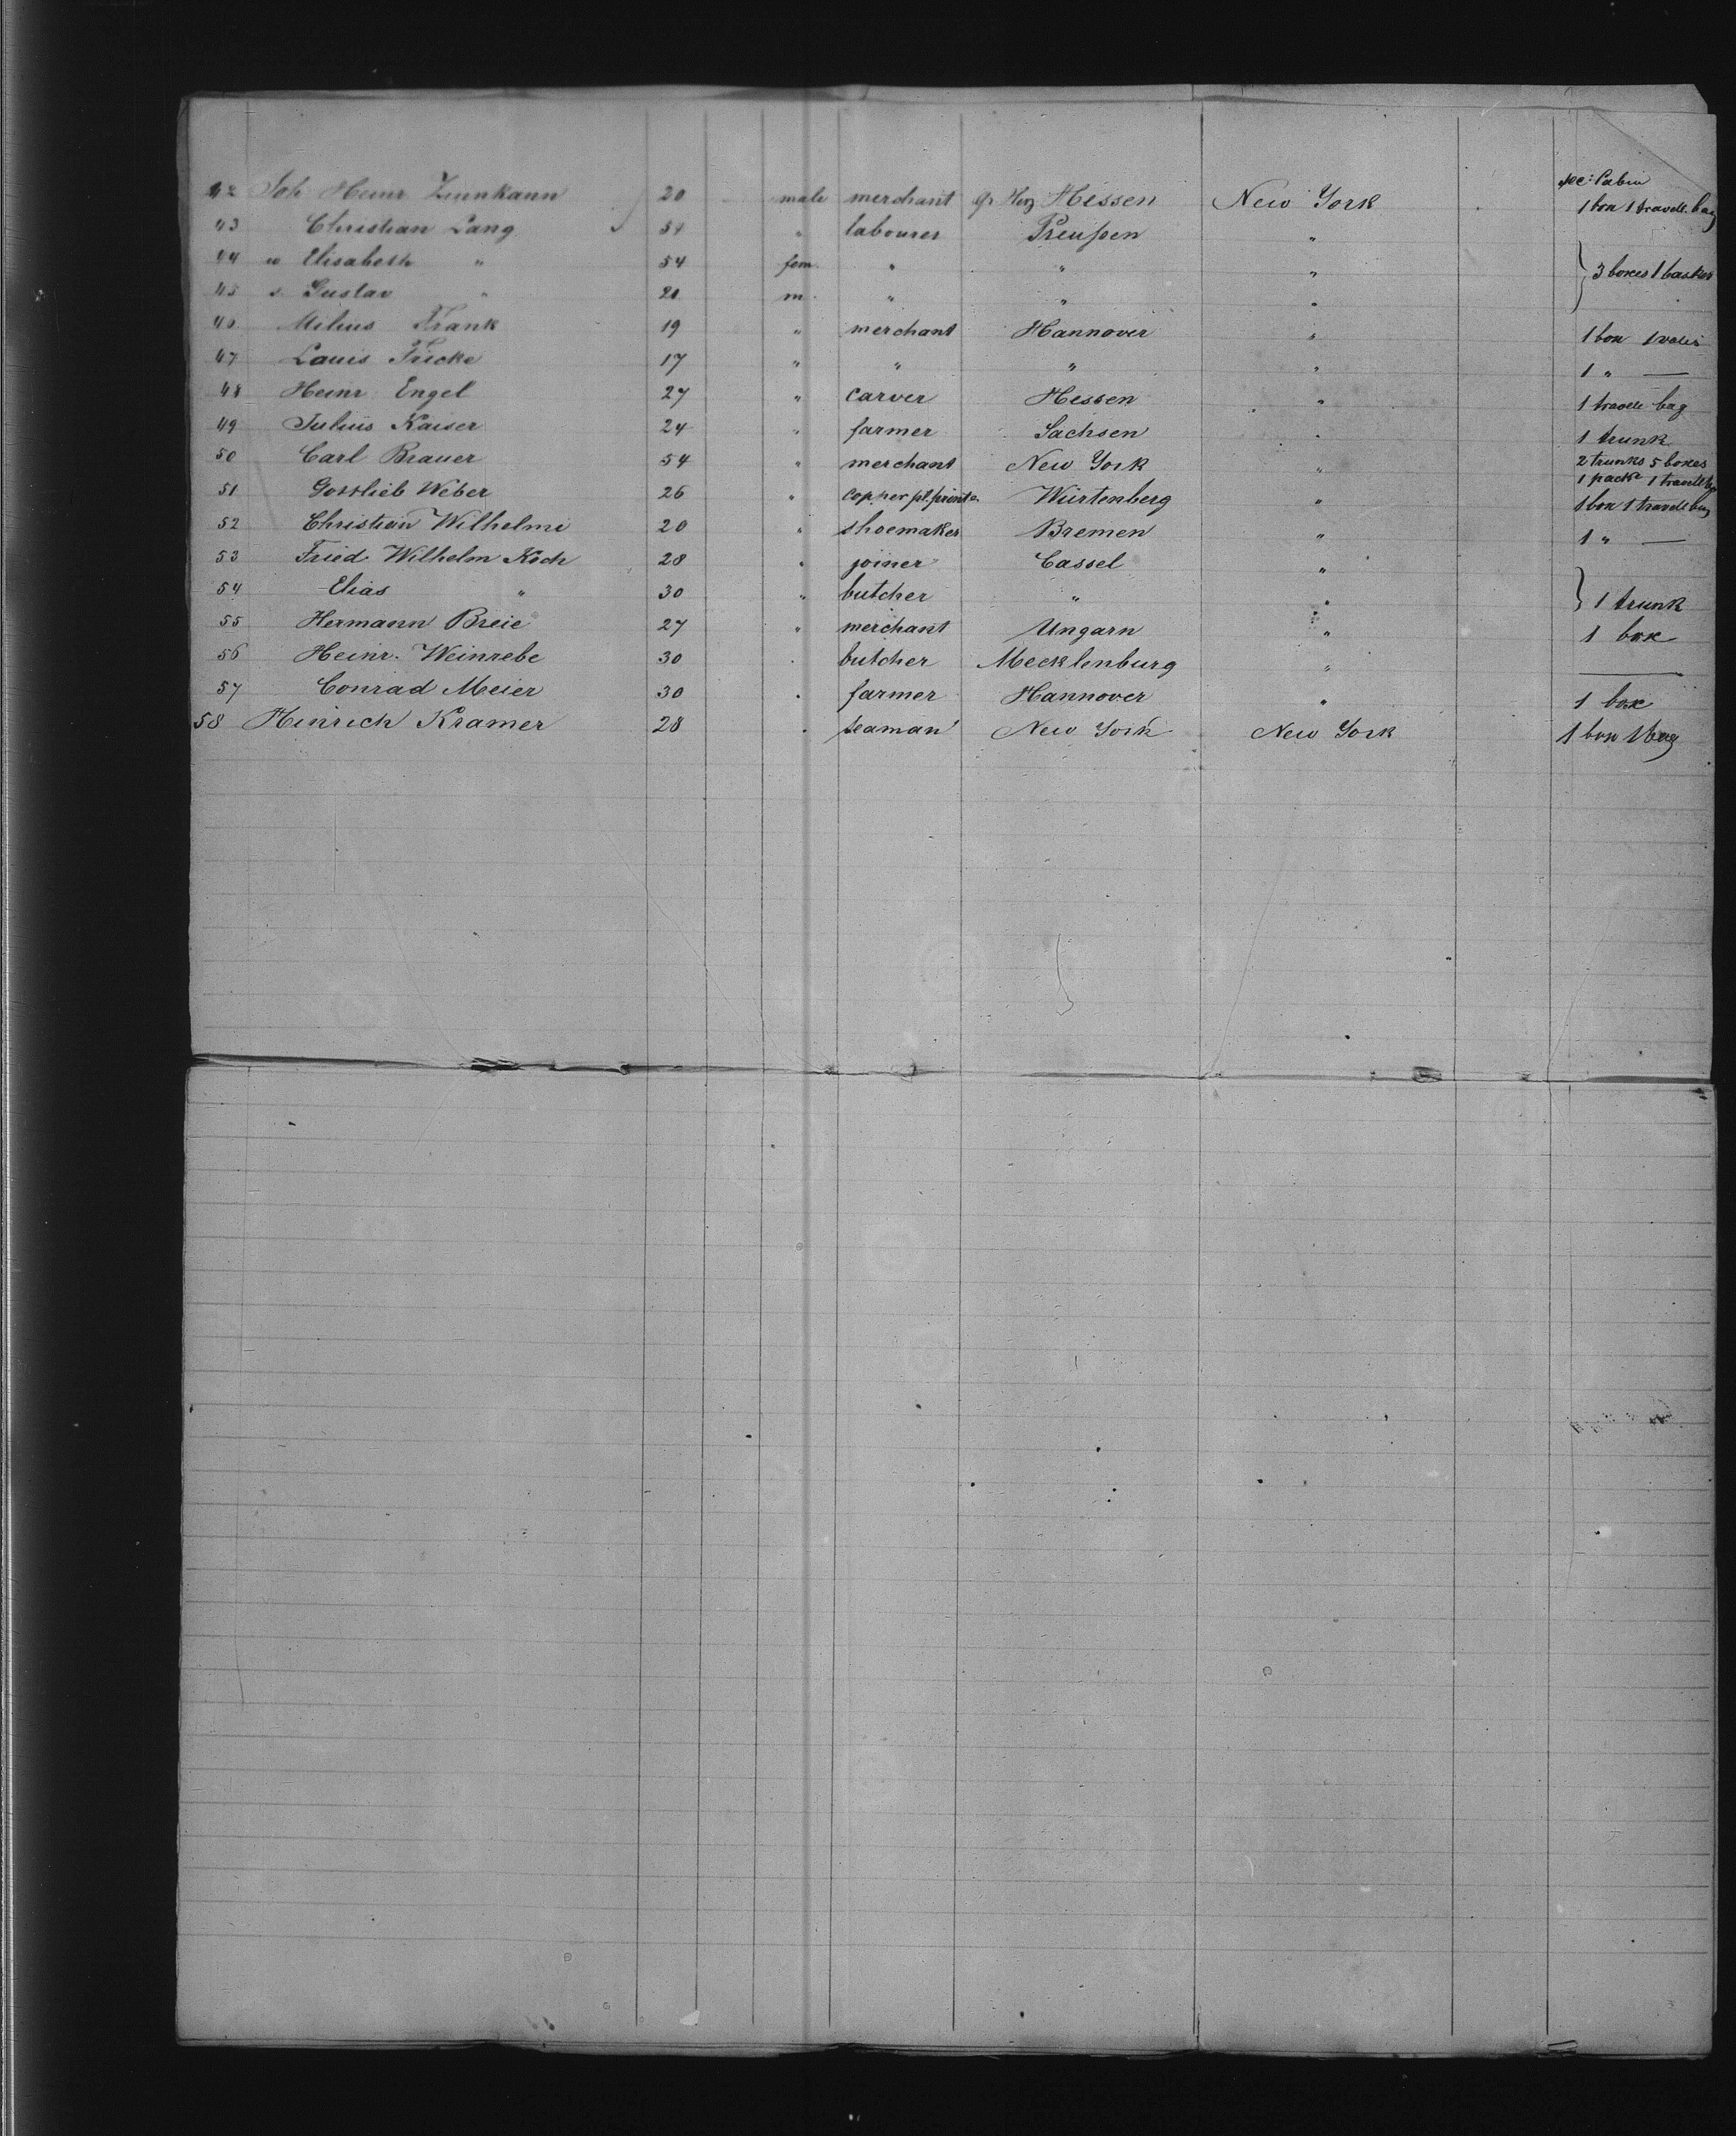 sec: Cabin
42 Joh Heinr Zinnkann 20 male merchant Gr Herz Hessen New York 1 box 1 travell. bag
43 Christian Lang 51 " labourer Preußen "
44 w Elisabeth " 54 fem. " " " } 3 boxes 1 basket
45 s. Gustav " 20 m. " " "
46 Milius Frank 19 " merchant Hannover " 1 box 1 valis
47 Louis Fricke 17 " " " " 1 " —
48 Heinr Engel 27 " carver Hessen " 1 travell bag
49 Julius Kaiser 24 " farmer Sachsen " 1 trunk
50 Carl Brauer 54 " merchant New York " 2 trunks 5 boxes
1 pack 1 travell bag
51 Gottlieb Weber 26 " copper pl. printer Würtenberg " 1 box 1 travell bag
52 Christian Wilhelmi 20 " shoemaker Bremen " 1 " —
53 Fried Wilhelm Koch 28 " joiner Cassel "
54 Elias " 30 " butcher " " } 1 trunk
55 Hermann Breie 27 " merchant Ungarn " 1 box
56 Heinr. Weinrebe 30 " butcher Mecklenburg " —
57 Conrad Meier 30 " farmer Hannover " 1 box
58 Hinrich Kramer 28 " seaman New York New York 1 box 1 bag